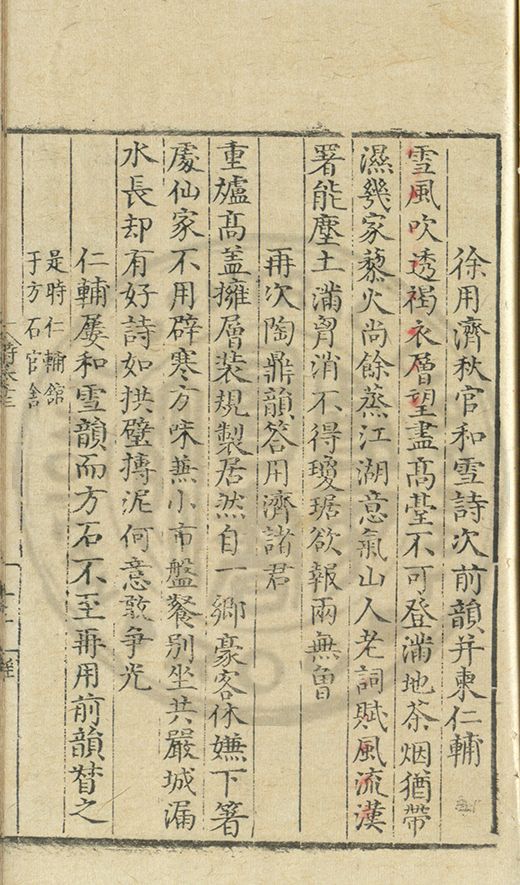 徐用濟秋官和雪詩次前韻并柬仁輔
雪風吹透褐衣層望盡髙臺不可登滿地茶烟猶帶
濕幾家藜火尚餘蒸江湖意氣山人老詞賦風流漢
署能塵土滿胷消不得瓊琚欲報兩無曾
再次陶鼎韻答用濟諸君
重爐髙盖擁層裝規製居然自一鄉豪客休嫌下箸
處仙家不用辟寒方味兼小市盤餐別坐共嚴城漏
水長却有好詩如拱璧摶泥何意敢爭光
仁輔屢和雪韻而方石不至再用前韻督之
是時仁輔舘
于方石官舍